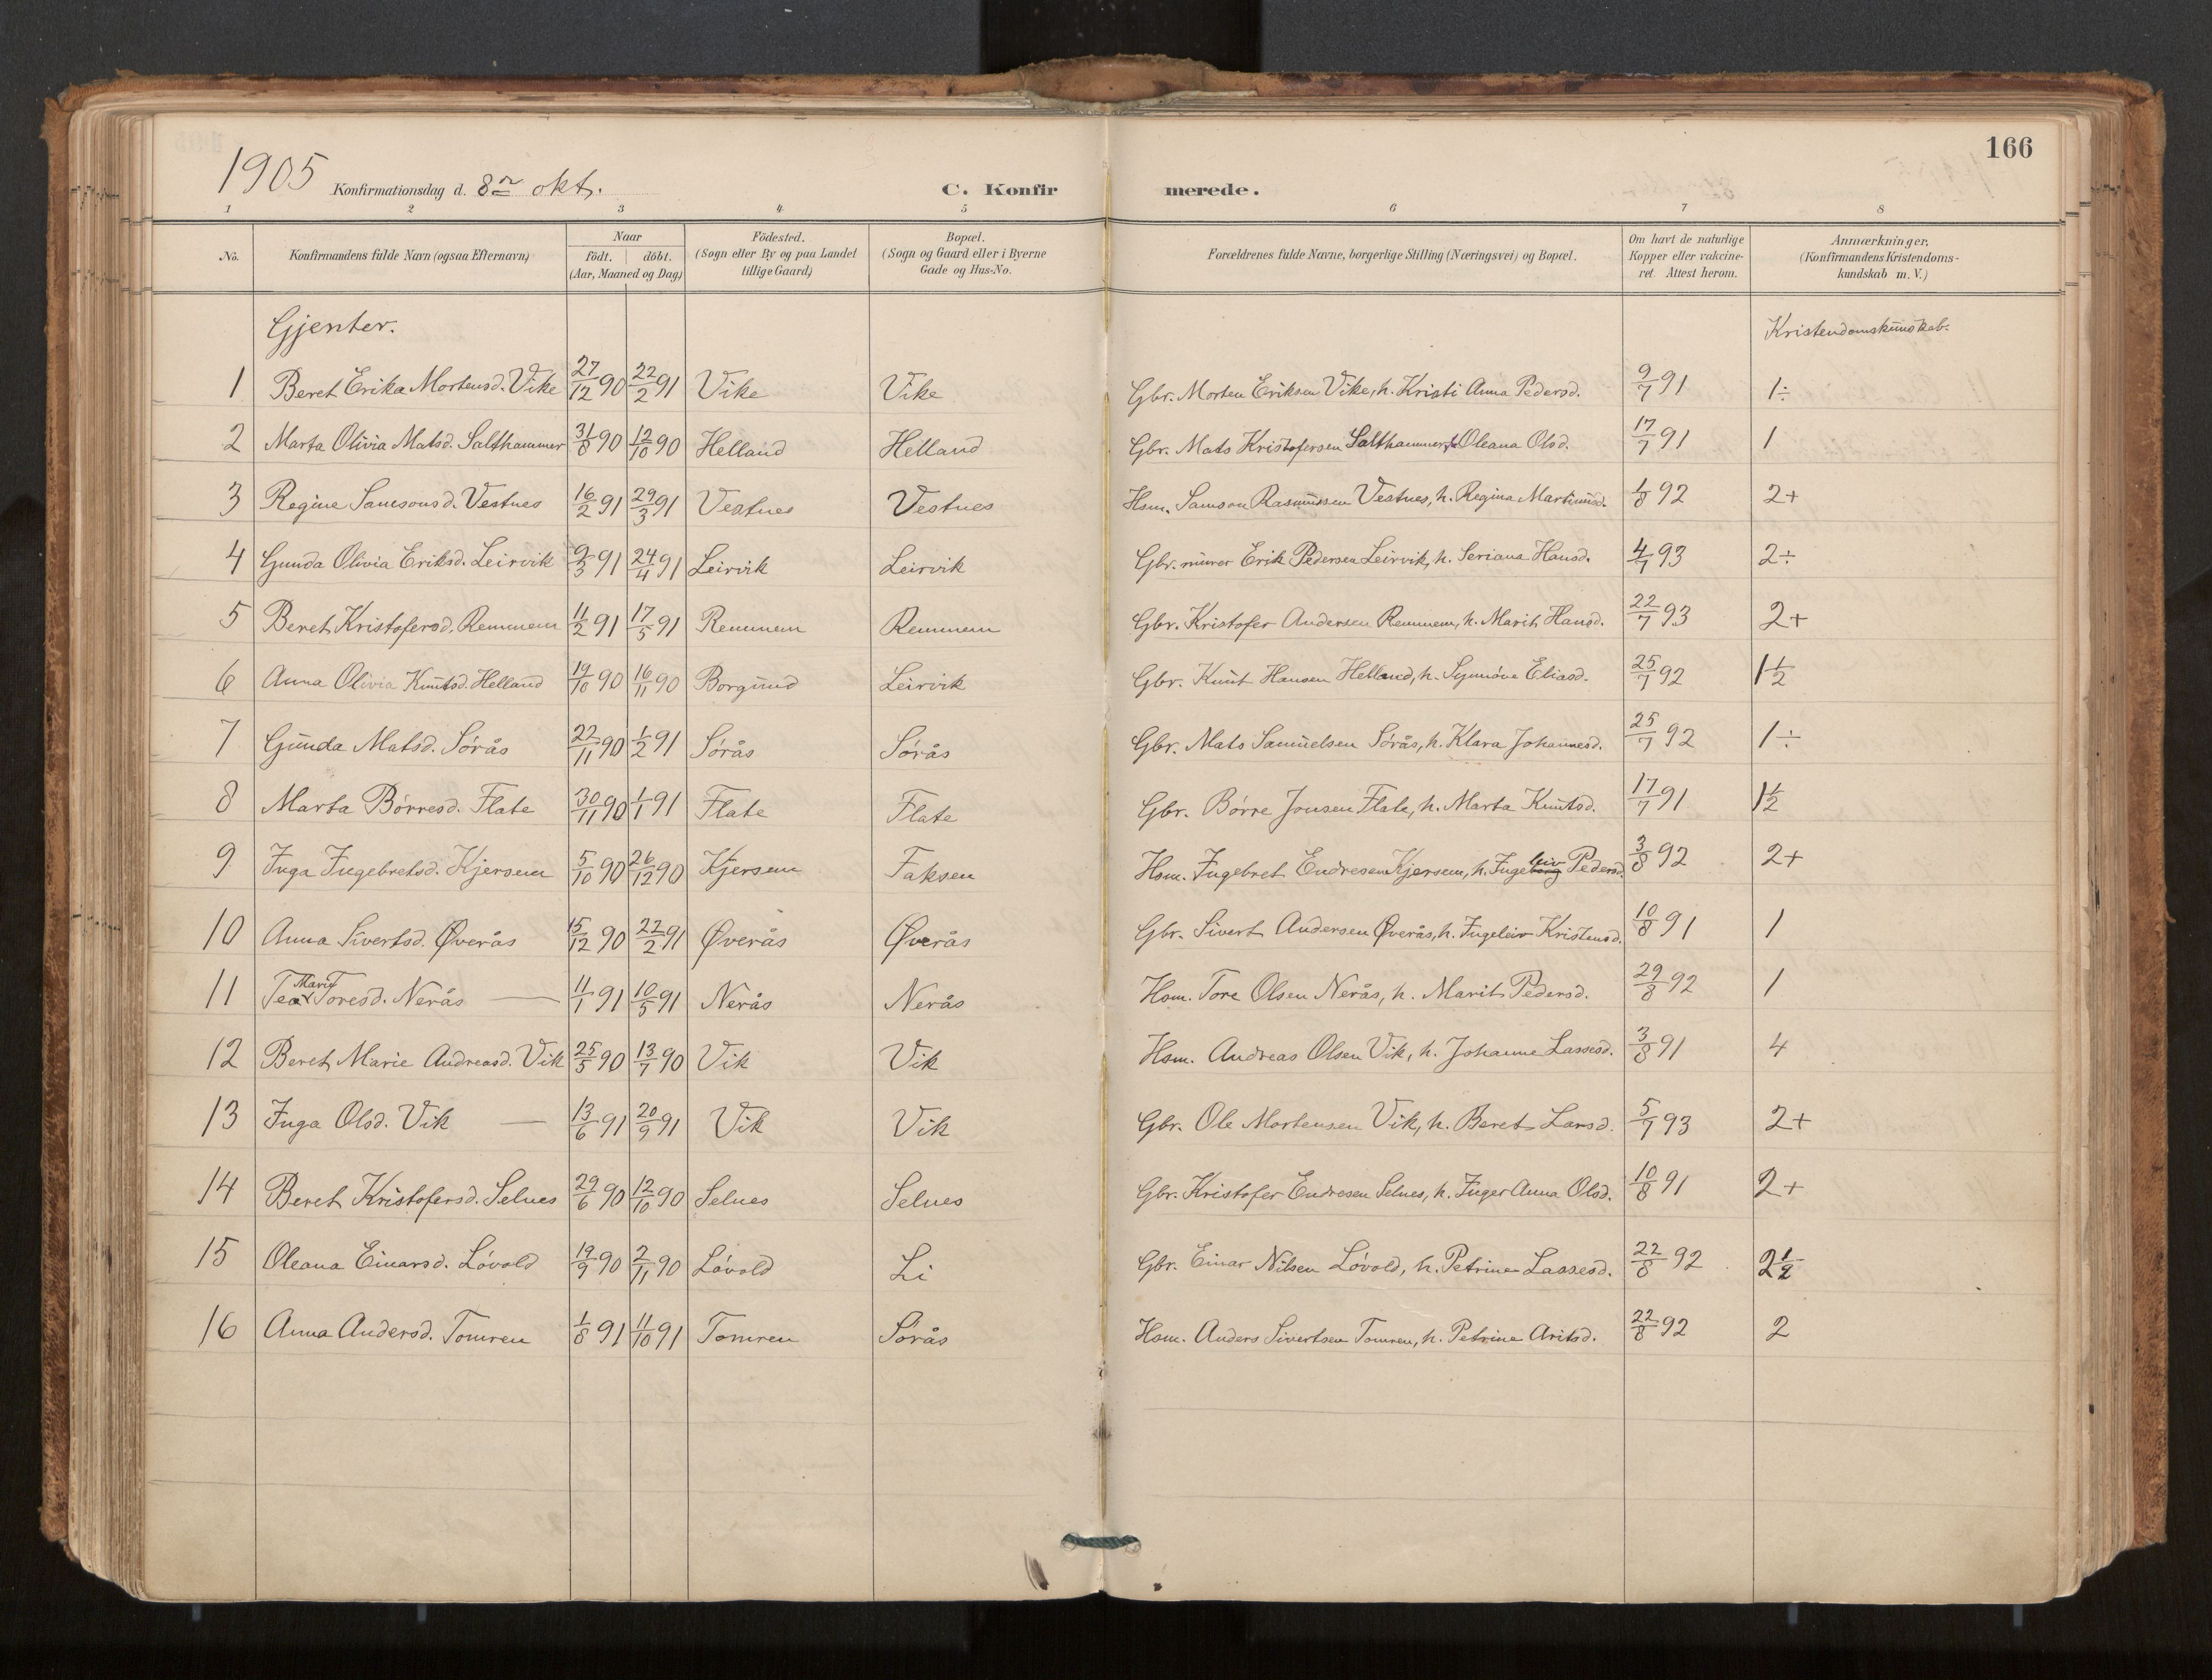 166
1905 Konfirmationsdag d. 8de okt. C. Konfirmerede.
1 2 3 4 5 6 7 8
No. Konfirmandens fulde Navn (ogsaa Efternavn) Naar født. døbt. (Aar, Maaned og Dag) Fødested. (Sogn eller By og paa Landet tillige Gaard) Bopæl. (Sogn og Gaard eller i Byerne Gade og Hus-No. Forældrenes fulde Navne, borgerlige Stilling (Næringsvei) og Bopæl. Om havt de naturlige Kopper eller vakcineret. Attest herom. Anmærkninger. (Konfirmandens Kristendomskundskab m. V.)
Gjenter. Kristendomskunskab:
1 Beret Erika Mortensd. Vike 27/12 90 22/2 91 Vike Vike Gbr. Morten Eriksen Vike, h. Kristi Anna Pedersd. 9/7 91 1÷
2 Marta Olivia Matsd. Salthammer 31/8 90 12/10 90 Helland Helland Gbr. Mats Kristofersen Salthammer, h. Oleana Olsd. 17/7 91 1
3 Regine Samsonsd. Vestnes 16/2 91 29/3 91 Vestnes Vestnes Hsm. Samson Rasmussen Vestnes, h. Regina Martinusd. 1/8 92 2+
4 Gunda Olivia Eriksd. Leirvik 9/3 91 24/4 91 Leirvik Leirvik Gbr. murer Erik Pedersen Leirvik, h. Seriana Hansd. 4/7 93 2÷
5 Beret Kristofersd. Remmem 11/2 91 17/5 91 Remmem Remmem Gbr. Kristofer Andersen Remmem, h. Marit Hansd. 22/7 93 2+
6 Anna Olivia Knutsd. Helland 19/10 90 16/11 90 Borgund Leirvik Gbr. Knut Hansen Helland, h. Synnöve Eliasd. 25/7 92 1 1/2
7 Gunda Matsd. Sørås 22/11 90 1/2 91 Sørås Sørås Gbr. Mats Samuelsen Sørås, h. Klara Johannesd. 25/7 92 1÷
8 Marta Børresd. Flate 30/11 90 1/1 91 Flate Flate Gbr. Børre Jonsen Flate, h. Marta Knutsd. 17/7 91 1 1/2
9 Inga Ingebretsd. Kjersem 5/10 90 26/12 90 Kjersem Taksen Hsm. Ingebret Endresen Kjersem, h. Ingeleiv Pedersd. 3/8 92 2+
10 Anna Sivertsd. Øverås 15/12 90 22/2 91 Øverås Øverås Gbr. Sivert Andersen Øverås, h. Ingeleiv Kristensd. 10/8 91 1
11 Tea Marit Toresd. Nerås — 11/1 91 10/5 91 Nerås Nerås Hsm. Tore Olsen Nerås, h. Marit Pedersd. 29/8 92 1
12 Beret Marie Andreasd. Vik 25/5 90 13/7 90 Vik Vik Hsm. Andreas Olsen Vik, h. Johanne Lassesd. 3/8 91 4
13 Inga Olsd. Vik — 13/6 91 20/9 91 Vik Vik Gbr. Ole Mortensen Vik, h. Beret Larsd. 5/7 93 2+
14 Beret Kristofersd. Selnes 29/6 90 12/10 90 Selnes Selnes Gbr. Kristofer Endresen Selnes, h. Inger Anna Olsd. 10/8 91 2+
15 Oleana Einarsd. Løvold 19/9 90 2/11 90 Løvold Li Gbr. Einar Nilsen Løvold, h. Petrine Lassesd. 22/8 92 2 1/2
16 Anna Andersd. Tomren 1/8 91 11/10 91 Tomren Sørås Hsm. Anders Sivertsen Tomren, h. Petrine Aritsd. 22/8 92 2